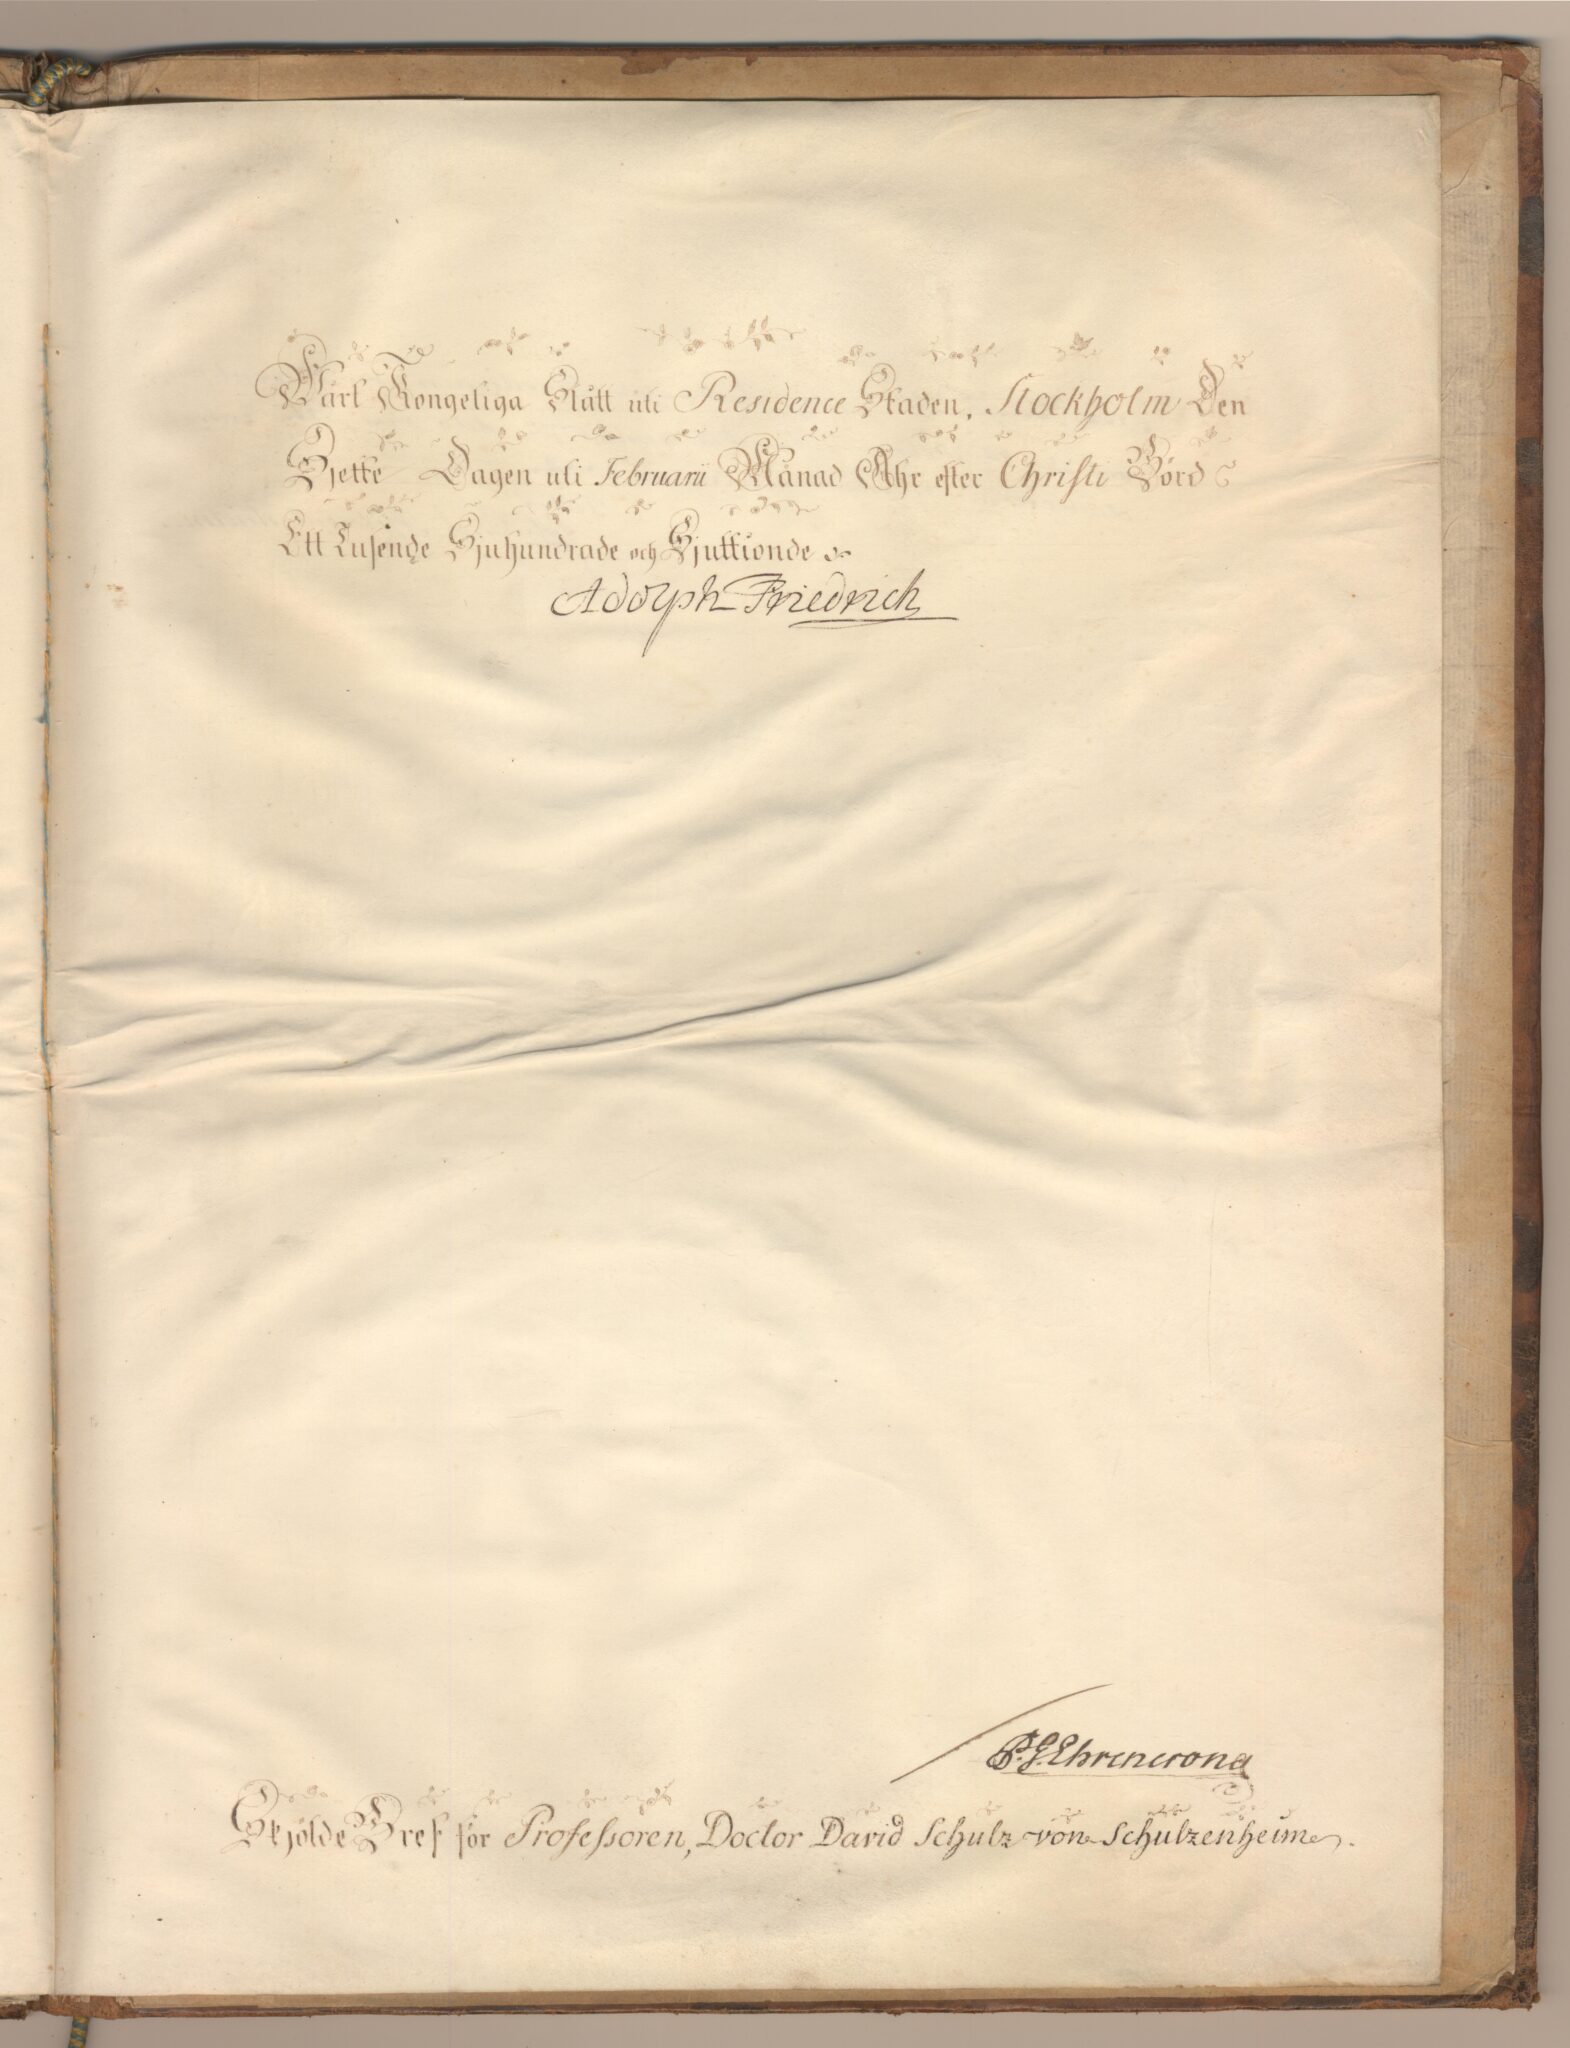 Wårt Kongeliga Slått uti Residence Staden, Stockholm Den
Sjette Dagen uti Februarii Månad Åhr efter Christi Börd
Ett Tusende Sjuhundrade och Sjuttionde
Adolph Friedrich
P. G. Ehrencrona
Skjölde Bref för Professoren, Doctor David Schulz von Schulzenheim.